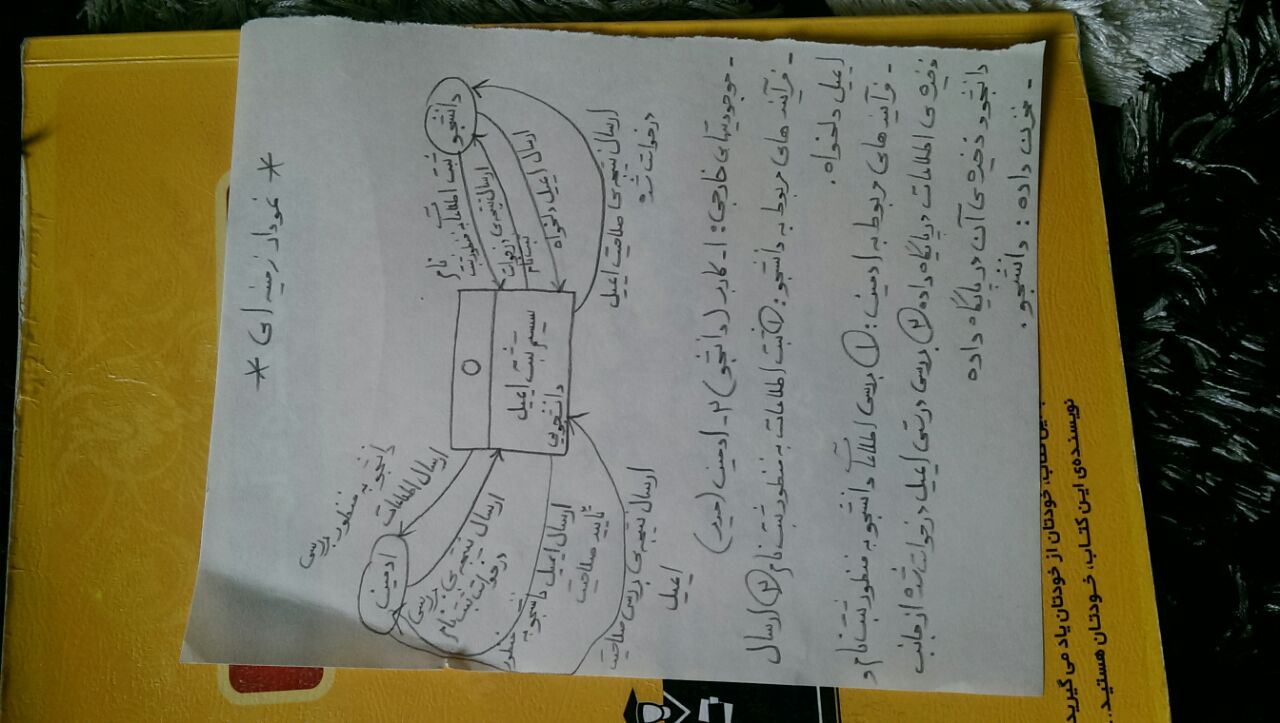 * نمودار زمینه ای *
دانشجو
ثبت اطلاعات به منظور ثبت
نام
ارسال نتیجه ی درخواست
ثبت نام
ارسال ایمیل دلخواه
ارسال نتیجه ی صلاحیت ایمیل
درخواست شده
0
سیستم ثبت ایمیل
دانشجویی
ادمین
ارسال اطلاعات
دانشجو به منظور بررسی
ارسال نتیجه ی بررسی
درخواست ثبت نام
ارسال ایمیل دانشجو به منظور
تأیید صلاحیت
ارسال نتیجه ی بررسی صلاحیت
ایمیل
- موجودیتهای خارجی: 1- کاربر (دانشجو) 2- ادمین (مدیر)
- فرآیند های مربوط به دانشجو: 1 ثبت اطلاعات به منظور ثبت نام 2 ارسال
ایمیل دلخواه.
- فرآیند های مربوط به ادمین: 1 بررسی اطلاعات دانشجو به منظور ثبت نام و
ذخیره ی اطلاعات در پایگاه داده 2 بررسی درستی ایمیل درخواست شده از جانب
دانشجو و ذخیره ی آن در پایگاه داده
- مخزن داده: دانشجو.
خودتان از خودتان یاد می گیرید
نویسنده‌ی این کتاب، خودتان هستید...